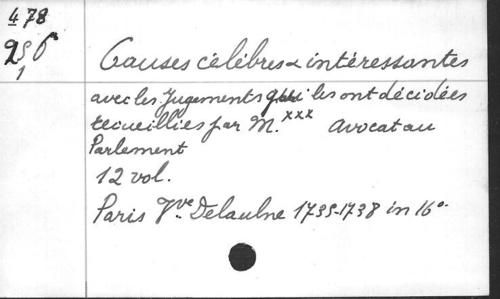 478
Causes célèbres & intéressantes
avec les Jugements qui les ont décidées
recueillies par M.xxx Avocat au
Parlement
12 vol.
Paris Vve Delaulne 1735-1738 in 16°